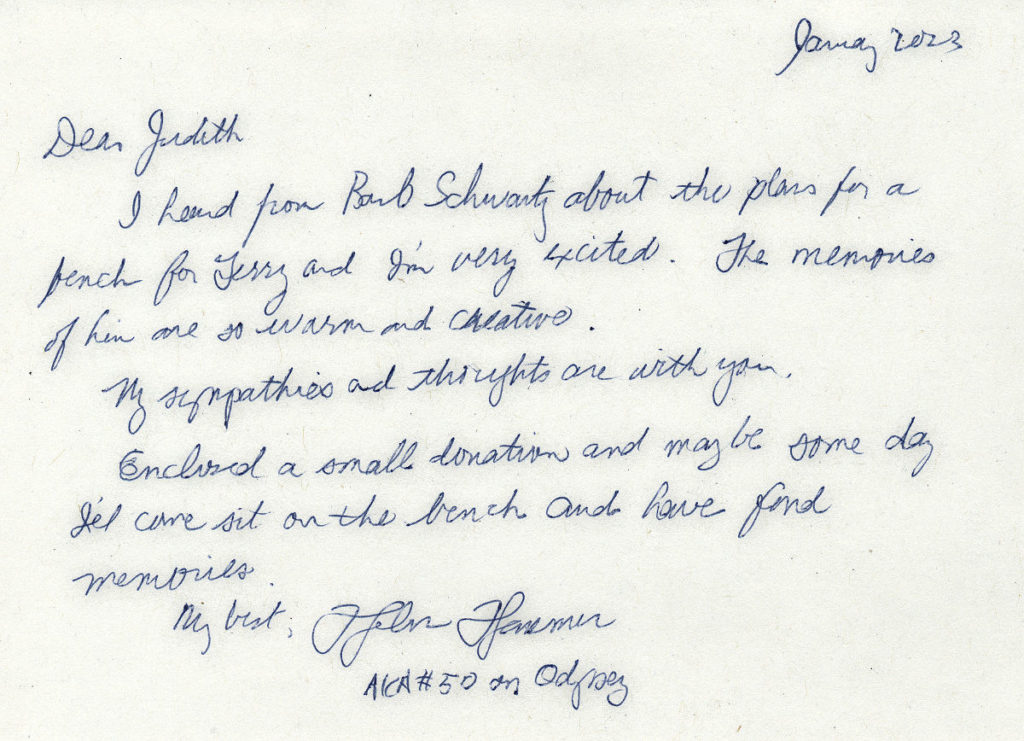 January 2023
Dear Judith
I heard from Barb Schwartz about the plans for a
bench for Terry and I'm very excited. The memories
of him are so warm and creative.
My sympathies and thoughts are with you.
Enclosed a small donation and maybe some day
I'll come sit on the bench and have fond
memories.
My best, Helen
AKA #50 on Odyssey